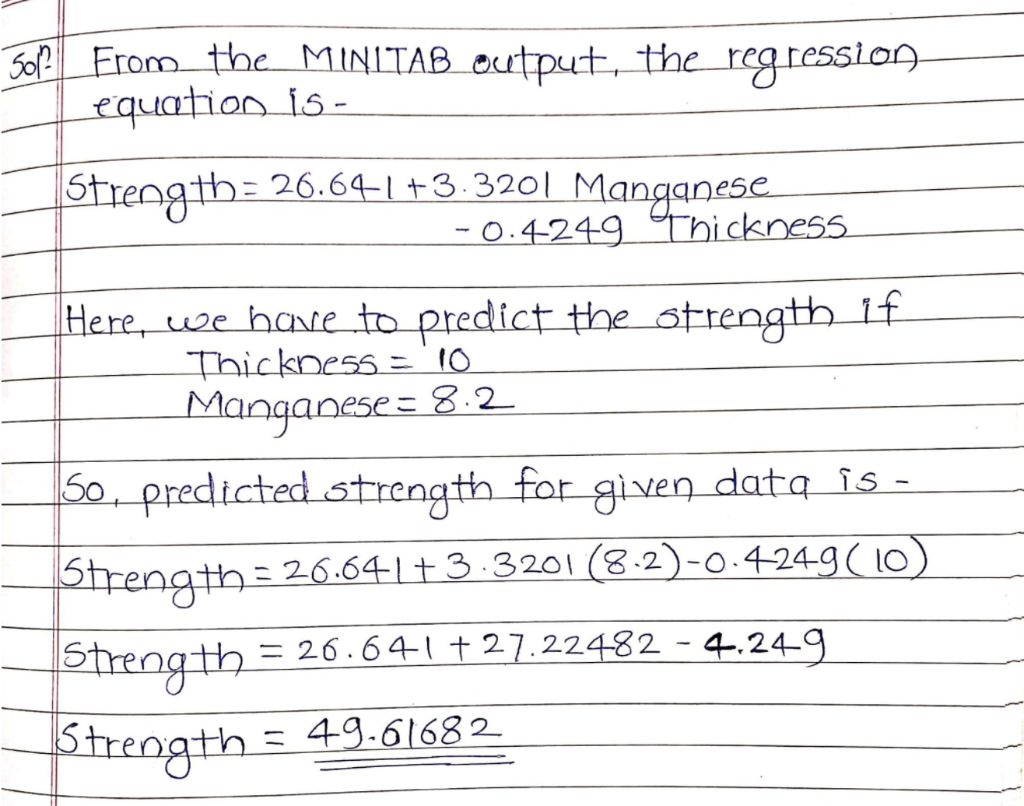 Solⁿ From the MINITAB output, the regression
equation is -
Strength = 26.641 + 3.3201 Manganese
- 0.4249 Thickness
Here, we have to predict the strength if
Thickness = 10
Manganese = 8.2
So, predicted strength for given data is -
Strength = 26.641 + 3.3201 (8.2) - 0.4249 (10)
Strength = 26.641 + 27.22482 - 4.249
Strength = 49.61682